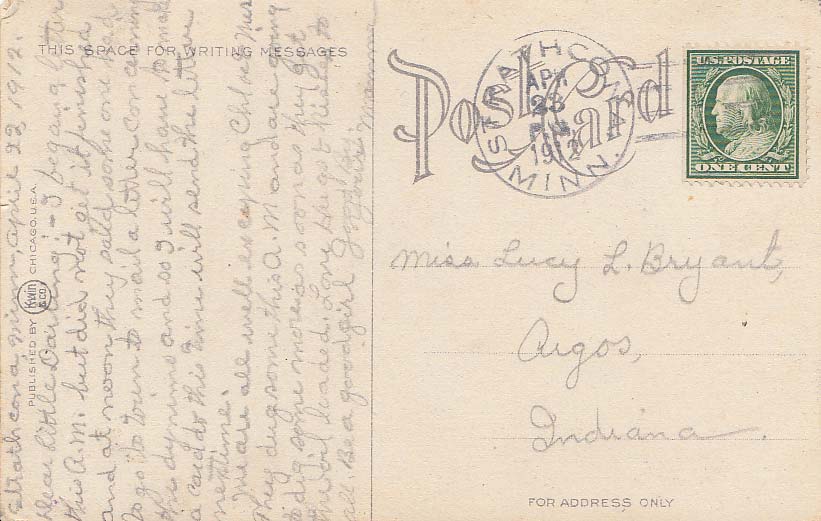 THIS SPACE FOR WRITING MESSAGES
Post Card
STRATHCONA
APR
23
P.M.
1912
MINN.
U.S. POSTAGE
ONE CENT
Strathcona, Minn, April 23, 1912.
Dear Little Darling:- I began a letter
this A.M. but did not get it finished
and at noon they said some one had
to go to town to mail a letter concerning
the dynimo and so I will have to mail
a card this time will send the letter
next time.
We are all well excepting Chloe.
They dug some this A.M. and are going
to dig some more as soon as they get
the soil loaded. Love hugs & kisses to
all. Be a good girl Good by
Mamma
Miss Lucy L. Bryant,
Argos,
Indiana.
PUBLISHED BY Kwin & Co. CHICAGO. U.S.A.
FOR ADDRESS ONLY